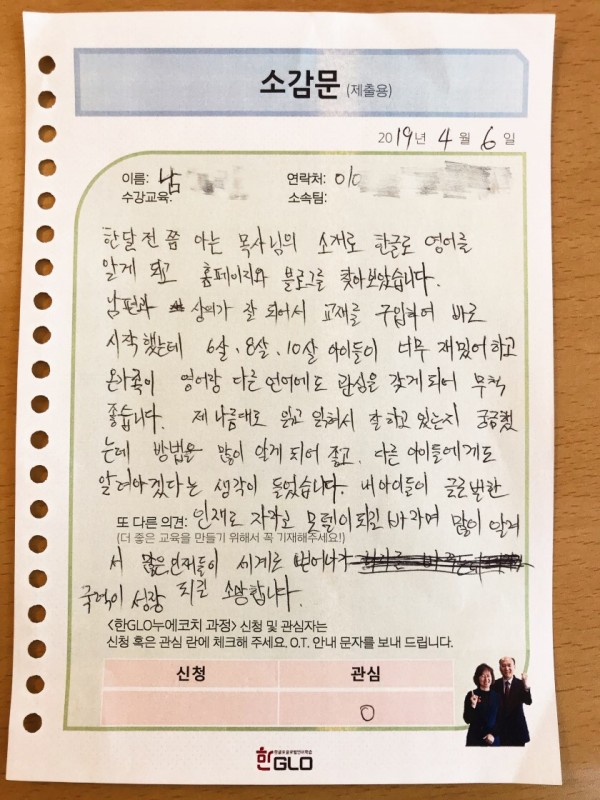 소감문 (제출용)
2019년 4월 6일
이름: 남
연락처: 010
수강교육:
소속팀:
한달 전 쯤 아는 목사님의 소개로 한글로 영어를
알게 되고 홈페이지와 블로그를 찾아보았습니다.
남편과 상의가 잘 되어서 교재를 구입하여 바로
시작했는데 6살, 8살, 10살 아이들이 너무 재밌어하고
온가족이 영어랑 다른 언어에도 관심을 갖게 되어 무척
좋습니다. 제 나름대로 읽고 잘하고 있는지 궁금했
는데 방법을 많이 알게 되어 좋고, 다른 아이들에게도
알려야겠다는 생각이 들었습니다. 내 아이들이 글로벌한
또 다른 의견: 인재로 자라고 모델이 되길 바라며 많이 알려
(더 좋은 교육을 만들기 위해서 꼭 기재해주세요!)
서 많은 인재들이 세계로 뻗어나가
국력이 성장 되길 소망합니다.
<한GLO누에코치 과정> 신청 및 관심자는
신청 혹은 관심 란에 체크해 주세요. O.T. 안내 문자를 보내 드립니다.
신청 관심
O
한GLO